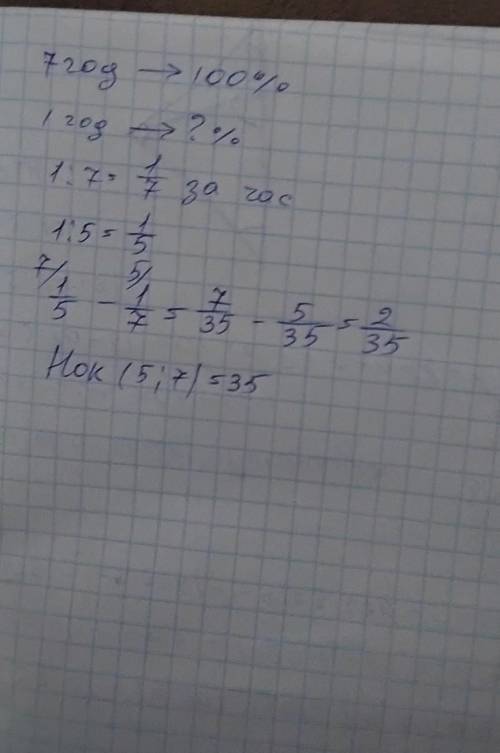 7 год → 100%
1 год → ? %
1:7 = 1/7 за час
1:5 = 1/5
7/ 1/5 - 5/ 1/7 = 7/35 - 5/35 = 2/35
Нок (5;7) = 35